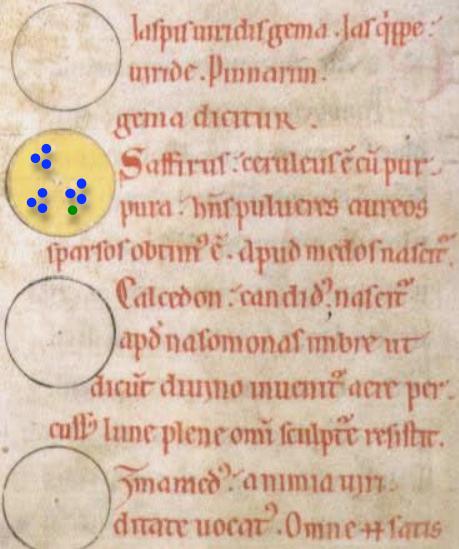 Iaspis uiridis gema. Ias q̇ppe:
uiride. Pinnarim
gema dicitur.
Saffirus: ceruleus ē cū pur-
pura. hn̄s pulueres aureos
sparsos optim⁹ ē. Apud medos nascit᷑.
Calcedon: candid⁹. nascit᷑
apd̕ nasomonas imbre ut
dicūt diuino inuenit᷑ aere per-
cuss⁹ lune plene omī sculpt᷑e resistit.
Zmaragd⁹: a nimia uiri-
ditate uocat᷑. Omne satis